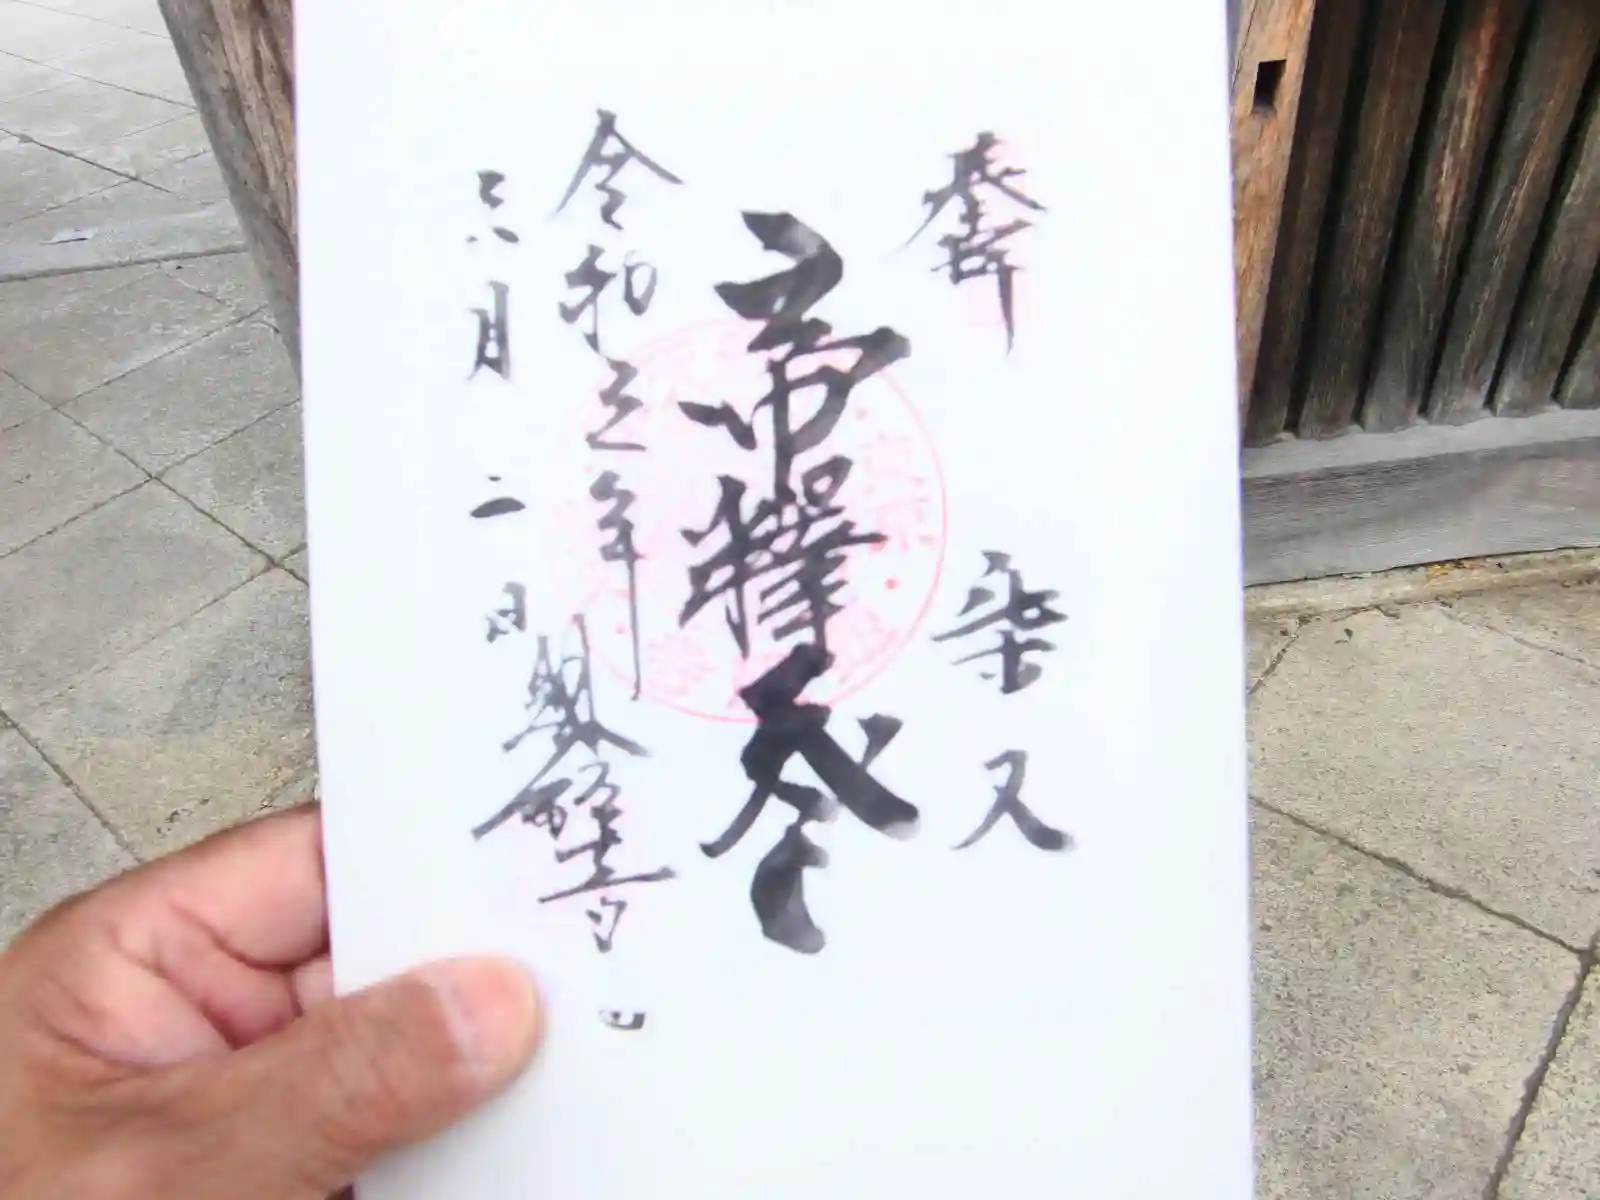 奉拝 柴又
帝釋天
令和元年
六月二日
題經寺